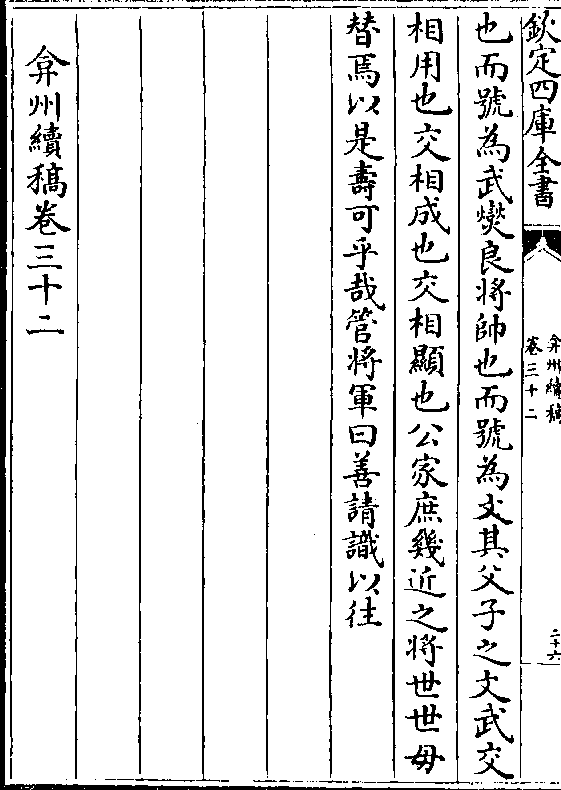 欽定四庫全書
弇州續稿
卷三十二
二十六
也而號為武爕良將帥也而號為文其父子之文武交
相用也交相成也交相顯也公家庶幾近之將世世毋
替焉以是壽可乎哉管將軍曰善請識以往
弇州續稿卷三十二